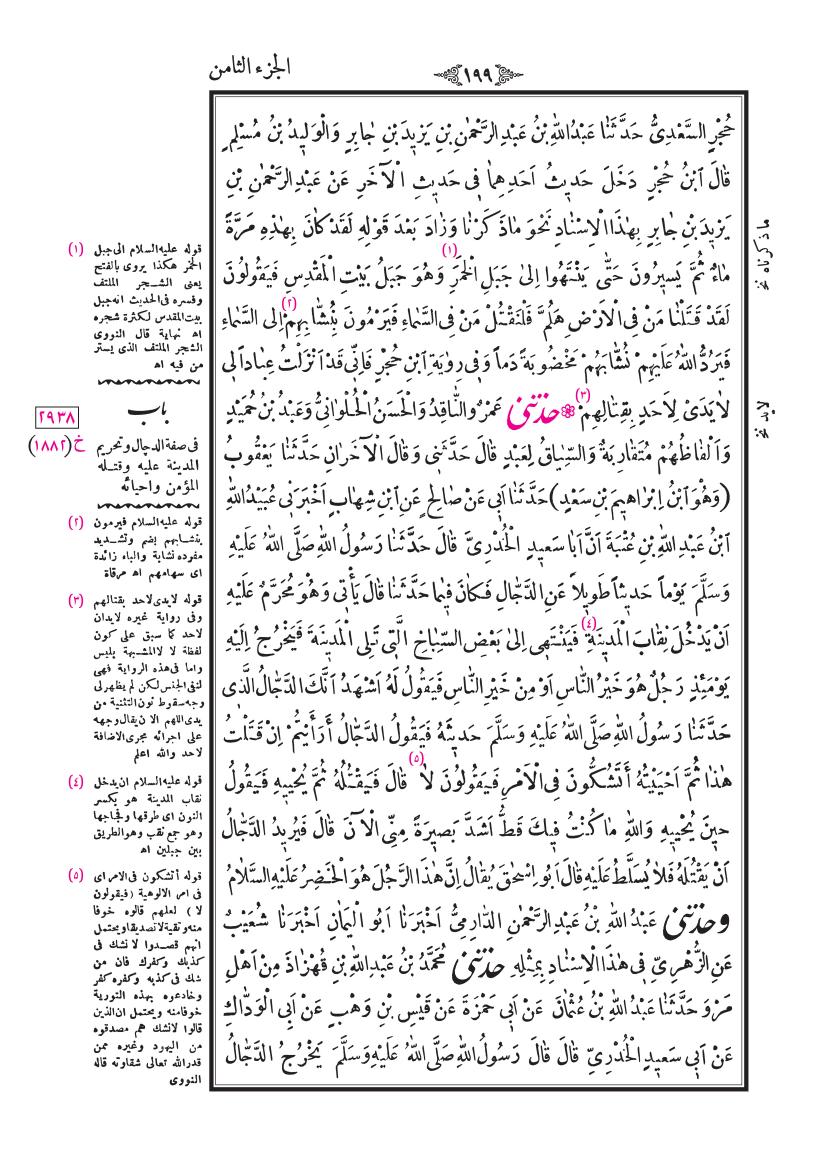 الجزء الثامن
١٩٩
حُجْرٍ السَّعْدِىُّ حَدَّثَنَا عَبْدُاللّٰهِ بْنُ عَبْدِ الرَّحْمٰنِ بْنِ يَزِيدَ بْنِ جَابِرٍ وَالْوَلِيدُ بْنُ مُسْلِمٍ
قَالَ ابْنُ حُجْرٍ دَخَلَ حَدِيثُ اَحَدِهِمَا فِى حَدِيثِ الْآخَرِ عَنْ عَبْدِ الرَّحْمٰنِ بْنِ
يَزِيدَ بْنِ جَابِرٍ بِهٰذَا الْاِسْنَادِ نَحْوَ مَا ذَكَرْنَا وَزَادَ بَعْدَ قَوْلِهِ لَقَدْ كَانَ بِهٰذِهِ مَرَّةً
مَاءٌ ثُمَّ يَسِيرُونَ حَتّٰى يَنْتَهُوا اِلىٰ جَبَلِ الْخَمَرِ (١) وَهُوَ جَبَلُ بَيْتِ الْمَقْدِسِ فَيَقُولُونَ
لَقَدْ قَتَلْنَا مَنْ فِى الْاَرْضِ هَلُمَّ فَلْنَقْتُلْ مَنْ فِى السَّمَاءِ فَيَرْمُونَ بِنُشَّابِهِمْ (٢) اِلى السَّمَاءِ
فَيَرُدُّ اللّٰهُ عَلَيْهِمْ نُشَّابَهُمْ مَخْضُوبَةً دَماً وَفِى رِوَايَةِ ابْنِ حُجْرٍ فَاِنِّى قَدْ اَنْزَلْتُ عِبَاداً لِى
لَا يَدَىْ لِاَحَدٍ بِقِتَالِهِمْ (٣) ❁ حَدَّثَنِى عَمْرٌو النَّاقِدُ وَالْحَسَنُ الْحُلْوَانِىُّ وَعَبْدُ بْنُ حُمَيْدٍ
وَاَلْفَاظُهُمْ مُتَقَارِبَةٌ وَالسِّيَاقُ لِعَبْدٍ قَالَ حَدَّثَنِى وَقَالَ الْآخَرَانِ حَدَّثَنَا يَعْقُوبُ
(وَهُوَ ابْنُ اِبْرَاهِيمَ بْنِ سَعْدٍ) حَدَّثَنَا اَبِى عَنْ صَالِحٍ عَنِ ابْنِ شِهَابٍ اَخْبَرَنِى عُبَيْدُ اللّٰهِ
ابْنُ عَبْدِ اللّٰهِ بْنِ عُتْبَةَ اَنَّ اَبَا سَعِيدٍ الْخُدْرِىَّ قَالَ حَدَّثَنَا رَسُولُ اللّٰهِ صَلَّى اللّٰهُ عَلَيْهِ
وَسَلَّمَ يَوْماً حَدِيثاً طَوِيلاً عَنِ الدَّجَّالِ فَكَانَ فِيمَا حَدَّثَنَا قَالَ يَأْتِى وَهُوَ مُحَرَّمٌ عَلَيْهِ
اَنْ يَدْخُلَ نِقَابَ الْمَدِينَةِ (٤) فَيَنْتَهِى اِلىٰ بَعْضِ السِّبَاخِ الَّتِى تَلِى الْمَدِينَةَ فَيَخْرُجُ اِلَيْهِ
يَوْمَئِذٍ رَجُلٌ هُوَ خَيْرُ النَّاسِ اَوْ مِنْ خَيْرِ النَّاسِ فَيَقُولُ لَهُ اَشْهَدُ اَنَّكَ الدَّجَّالُ الَّذِى
حَدَّثَنَا رَسُولُ اللّٰهِ صَلَّى اللّٰهُ عَلَيْهِ وَسَلَّمَ حَدِيثَهُ فَيَقُولُ الدَّجَّالُ أَرَأَيْتُمْ اِنْ قَتَلْتُ
هٰذَا ثُمَّ اَحْيَيْتُهُ أَتَشُكُّونَ فِى الْاَمْرِ فَيَقُولُونَ لَا (٥) قَالَ فَيَقْتُلُهُ ثُمَّ يُحْيِيهِ فَيَقُولُ
حِينَ يُحْيِيهِ وَاللّٰهِ مَا كُنْتُ فِيكَ قَطُّ اَشَدَّ بَصِيرَةً مِنِّى الْآنَ قَالَ فَيُرِيدُ الدَّجَّالُ
اَنْ يَقْتُلَهُ فَلَا يُسَلَّطُ عَلَيْهِ قَالَ اَبُو اِسْحٰقَ يُقَالُ اِنَّ هٰذَا الرَّجُلَ هُوَ الْخَضِرُ عَلَيْهِ السَّلَامُ
وَحَدَّثَنِى عَبْدُ اللّٰهِ بْنُ عَبْدِ الرَّحْمٰنِ الدَّارِمِىُّ اَخْبَرَنَا اَبُو الْيَمَانِ اَخْبَرَنَا شُعَيْبٌ
عَنِ الزُّهْرِىِّ فِى هٰذَا الْاِسْنَادِ بِمِثْلِهِ حَدَّثَنِى مُحَمَّدُ بْنُ عَبْدِ اللّٰهِ بْنِ قُهْزَاذَ مِنْ اَهْلِ
مَرْوَ حَدَّثَنَا عَبْدُ اللّٰهِ بْنُ عُثْمَانَ عَنْ اَبِى حَمْزَةَ عَنْ قَيْسِ بْنِ وَهْبٍ عَنْ اَبِى الْوَدَّاكِ
عَنْ اَبِى سَعِيدٍ الْخُدْرِىِّ قَالَ قَالَ رَسُولُ اللّٰهِ صَلَّى اللّٰهُ عَلَيْهِ وَسَلَّمَ يَخْرُجُ الدَّجَّالُ
ما ذكرناه نخ
لا يد نخ
(١) قوله عليه السلام الى جبل
الخمر هكذا يروى بالفتح
يعنى الشجر الملتف
وفسره فى الحديث انه جبل
بيت المقدس لكثرة شجره
اه نهاية قال النووى
الشجر الملتف الذى يستر
من فيه اه
باب
٢٩٣٨
خ (١٨٨٢)
فى صفة الدجال وتحريم
المدينة عليه وقتله
المؤمن واحيائه
(٢) قوله عليه السلام فيرمون
بنشابهم بضم وتشديد
مفرده نشابة والباء زائدة
اى سهامهم اه مرقاة
(٣) قوله لايدى لاحد بقتالهم
وفى رواية غيره لايدان
لاحد كما سبق على كون
لفظة لا لا المشبهة بليس
واما فى هذه الرواية فهى
لنفى الجنس لكن لم يظهر لى
وجه سقوط نون التثنية من
يدى اللهم الا ان يقال وجهه
على اجرائه مجرى الاضافة
لاحد والله اعلم
(٤) قوله عليه السلام ان يدخل
نقاب المدينة هو بكسر
النون اى طرقها وفجاجها
وهو جمع نقب وهو الطريق
بين جبلين اه
(٥) قوله أتشكون فى الامر اى
فى امر الالوهية (فيقولون
لا) لعلهم قالوه خوفا
منه وتقية لا تصديقا ويحتمل
انهم قصدوا لا نشك فى
كذبك وكفرك فان من
شك فى كذبه وكفره كفر
وخادعوه بهذه التورية
خوفا منه ويحتمل ان الذين
قالوا لا نشك هم مصدقوه
من اليهود وغيره ممن
قدر الله تعالى شقاوته قاله
النووى